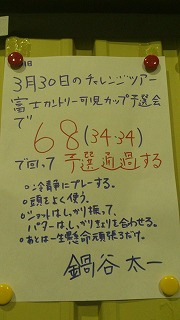 3月30日のチャレンジツアー
富士カントリー可児カップ予選会
で
68(34・34)
で回って予選通過する
○冷静にプレーする。
○頭をよく使う。
○ショットはしっかり振って、
パターはしっかりきょりを合わせる。
○あとは一生懸命頑張るだけ。
鍋谷太一